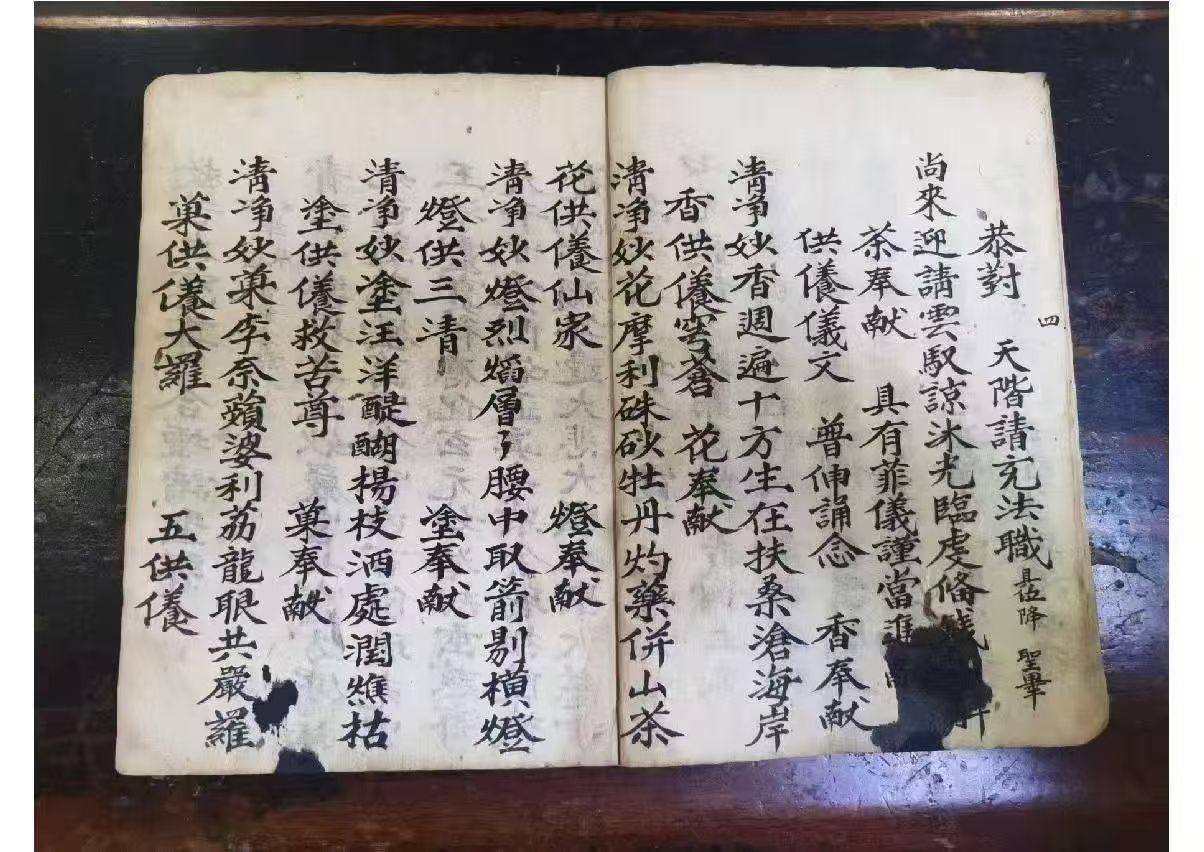 恭對　天階請充法職 具位降　聖畢
四
尚來迎請雲馭諒沐光臨虔俻
茶奉献　具有菲儀謹當進
供養儀文　普伸誦念　香奉献
清净妙香週遍十方生在扶桑滄海岸
香供養穹蒼　花奉献
清净妙花摩利硃砂牡丹灼藥併山茶
花供養仙家　燈奉献
清净妙燈烈焰層々腰中取箭剔橫燈
燈供三清　塗奉献
清净妙塗汪洋醍醐楊枝洒處潤憔枯
塗供養救苦尊　菓奉献
清净妙菓李奈蘋婆利荔龍眼共嚴羅
菓供養大羅　五供養